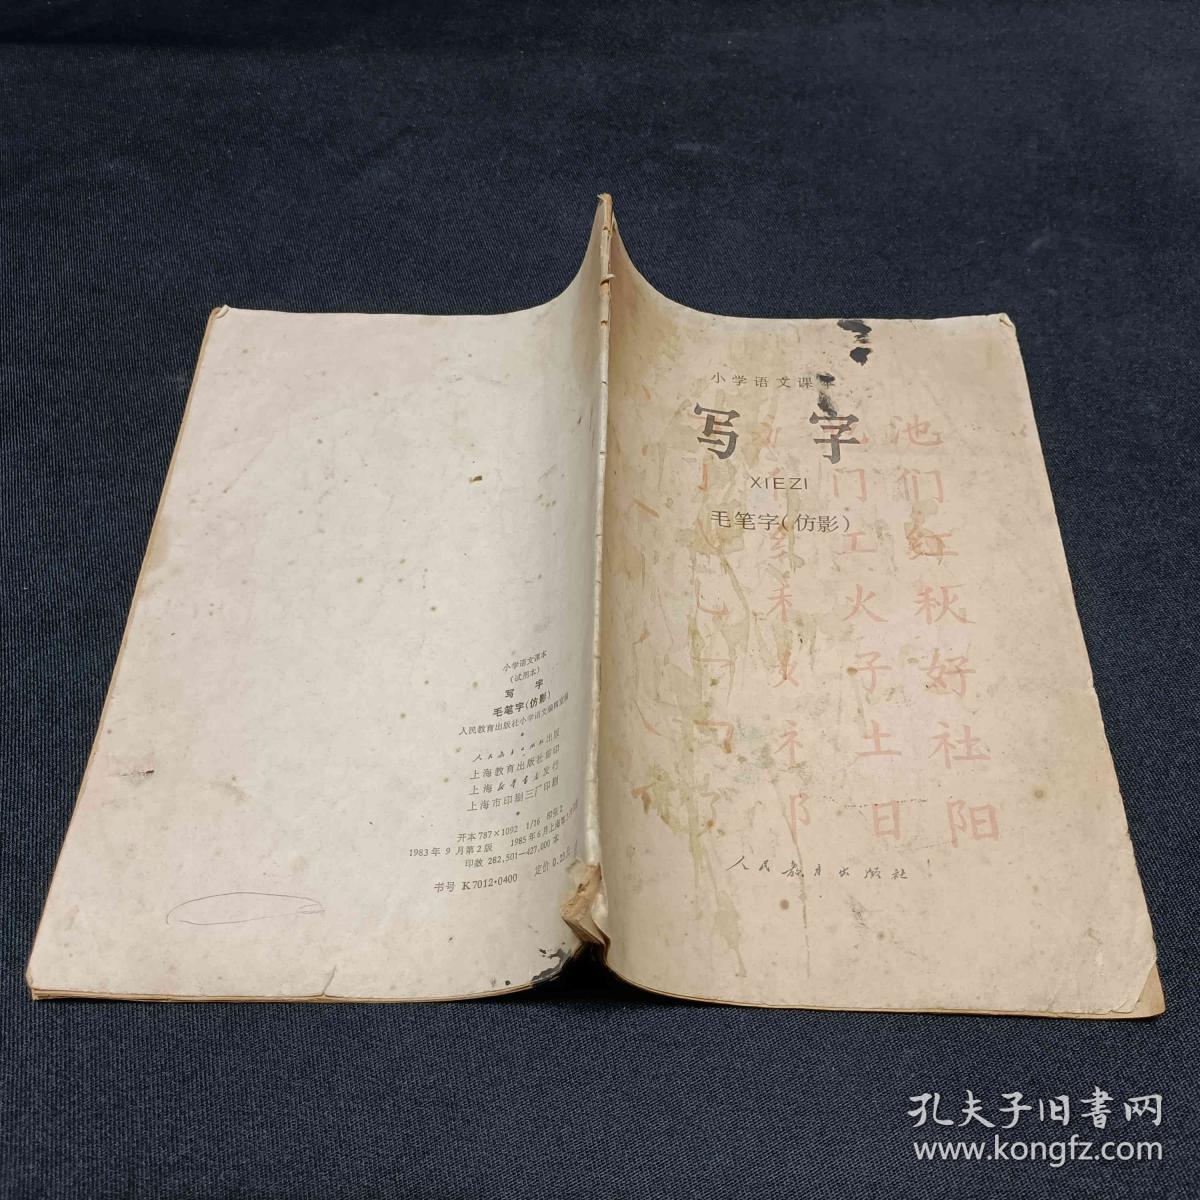 小学语文课本
写 字
XIEZI
毛笔字(仿影)
池
门 们
工 红
禾 火 秋
女 子 好
礻 土 社
阝 日 阳
人民教育出版社
小学语文课本
(试用本)
写 字
毛笔字(仿影)
人民教育出版社小学语文编辑室编
人民教育出版社出版
上海教育出版社重印
上海新华书店发行
上海市印刷三厂印刷
开本787×1092 1/16 印张2
1983年9月第2版 1985年6月上海第
印数 282,501—427,000本
书号 K7012·0400 定价 0.23元
孔夫子旧书网
www.kongfz.com